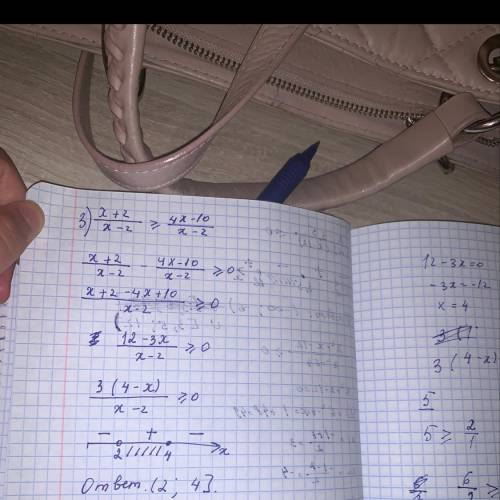 3) (x+2)/(x-2) ≥ (4x-10)/(x-2)
(x+2)/(x-2) - (4x-10)/(x-2) ≥ 0
(x+2-4x+10)/(x-2) ≥ 0
(12-3x)/(x-2) ≥ 0
3(4-x)/(x-2) ≥ 0
- + -
2 4 x
Ответ. (2; 4].
12-3x=0
-3x=-12
x=4
3(4-x)
5
5 ≥ 2/1
6/2